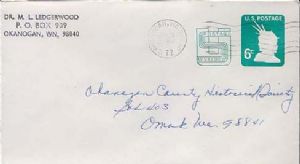 DR. M. L. LEDGERWOOD
P. O. BOX 939
OKANOGAN, WN, 98840
U.S. POSTAGE
6c
Okanogan County Historical Society
Box 403
Omak Wa. 98841